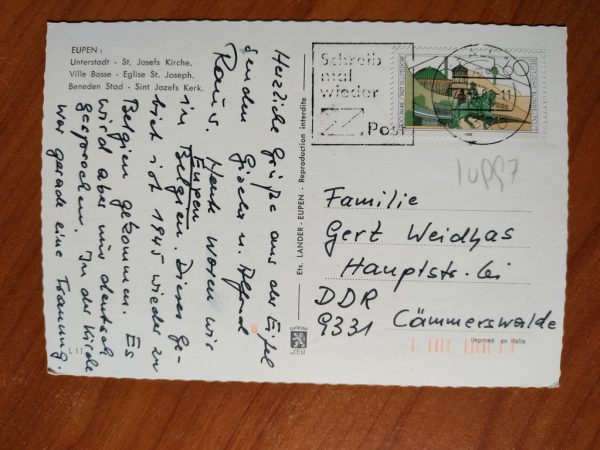 EUPEN:
Unterstadt - St. Josefs Kirche.
Ville Basse - Eglise St. Joseph.
Beneden Stad - Sint Jozefs Kerk.
Herzliche Grüße aus der Eifel
senden Gisela u. Alfred
Raüs. Heute waren wir
in Eupen
Belgien. Dieses Ge-
biet ist 1945 wieder zu
Belgien gekommen. Es
wird aber nur deutsch
gesprochen. In der Kirche
war gerade eine Trauung.
L 11
Ets. LANDER - EUPEN - Reproduction interdite
Schreib
mal
wieder
Post
Familie
Gert Weidhas
Hauptstr. 61
DDR
9331 Cämmerswalde
imprimé en Italie